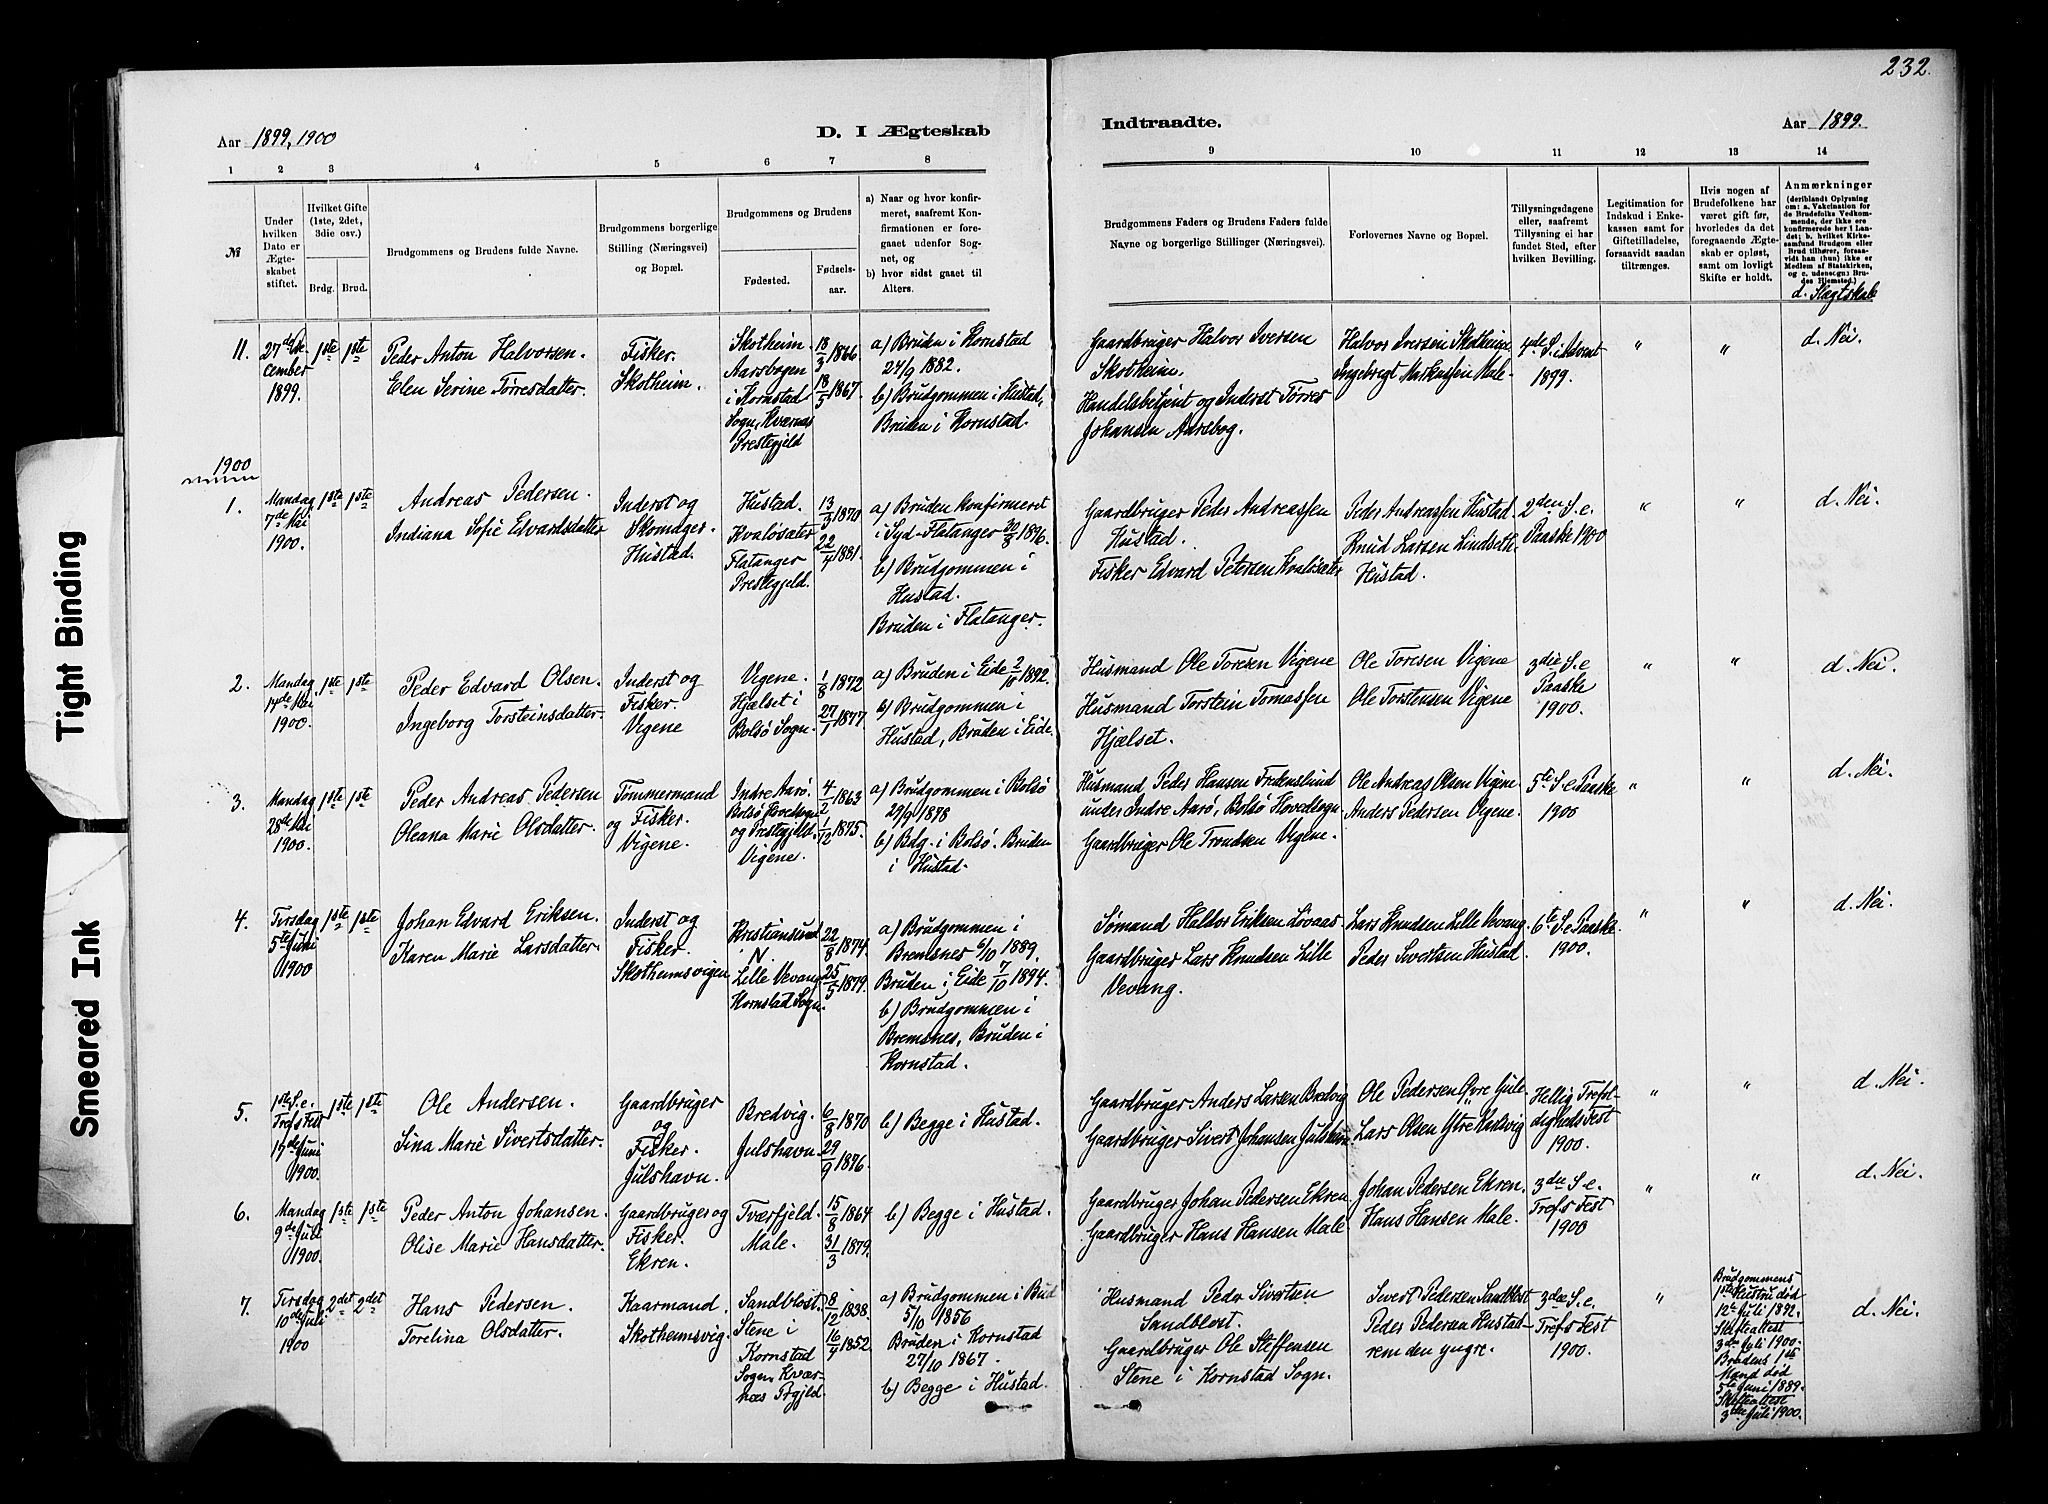 232.
Aar 1899, 1900
D. I Ægteskab
Indtraadte.
Aar 1899.
1 2 3 4 5 6 7 8
9 10 11 12 13 14
№
Under hvilken Dato er Ægteskabet stiftet.
Hvilket Gifte (1ste, 2det, 3die osv.)
Brdg. Brud.
Brudgommens og Brudens fulde Navne.
Brudgommens borgerlige Stilling (Næringsvei) og Bopæl.
Brudgommens og Brudens
Fødested. Fødselsaar.
a) Naar og hvor konfirmeret, saafremt Konfirmationen er foregaaet udenfor Sognet, og
b) hvor sidst gaaet til Alters.
Brudgommens Faders og Brudens Faders fulde Navne og borgerlige Stillinger (Næringsvei).
Forlovernes Navne og Bopæl.
Tillysningsdagene eller, saafremt Tillysning ei har fundet Sted, efter hvilken Bevilling.
Legitimation for Indskud i Enkekassen samt for Giftetilladelse, forsaavidt saadan tiltrænges.
Hvis nogen af Brudefolkene har været gift før, hvorledes da det foregaaende Ægteskab er opløst, samt om lovligt Skifte er holdt.
Anmærkninger
(deriblandt Oplysning om: a. Vakcination for de Brudefolks Vedkommende, der ikke ere konfirmerede her i Landet; b. hvilket Kirkesamfund Brudgom eller Brud tilhører, forsaavidt han (hun) ikke er Medlem af Statskirken, og c. udensogns Brudes Hjemsted.)
d. Slægtskab
11.
27de December 1899.
1ste 1ste
Peder Anton Halvorsen.
Elen Serine Tørresdatter.
Fisker.
Skotheim.
Skotheim.
Aarsbogen
i Kornstad
Sogn, Kværnes
Prestegjeld
18/3 1866
18/5 1867.
a) Bruden i Kornstad
24/9 1882.
b) Brudgommen i Hustad,
Bruden i Kornstad.
Gaardbruger Halvor Iversen
Skotheim.
Handelsbetjent og Inderst Tørres
Johansen Aarsbog.
Halvor Iversen Skotheim
Ingebrigt Markussen Male.
4de S. i Advent
1899.
" "
d. Nei.
1900
1.
Mandag
7de Mai
1900.
1ste 1ste
Andreas Pedersen.
Indiana Sofie Edvardsdatter
Inderst og
Skomager.
Hustad.
Hustad.
Kvaløsæter
Flatanger
Prestegjeld.
13/3 1870
22/4 1881.
a) Bruden konfirmeret
i Syd-Flatanger 30/8 1896.
b) Brudgommen i
Hustad.
Bruden i Flatanger.
Gaardbruger Peder Andreassen
Hustad.
Fisker Edvard Petersen Kvaløsæter
Peder Andreassen Hustad.
Knud Larsen Lindseth
Hustad.
2den S. e.
Paaske 1900
" "
d. Nei.
2.
Mandag
14de Mai
1900.
1ste 1ste
Peder Edvard Olsen.
Ingeborg Torsteinsdatter.
Inderst og
Fisker.
Vigene
Vigene.
Hjælset i
Bolsø Sogn.
1/8 1872
27/1 1877.
a) Bruden i Eide 2/10 1892.
b) Brudgommen i
Hustad, Bruden i Eide.
Husmand Ole Toresen Vigene
Husmand Torstein Tomassen
Hjælset.
Ole Toresen Vigene
Ole Torstensen Vigene
3die S. e
Paaske
1900.
" "
d. Nei.
3.
Mandag
28de Mai
1900.
1ste 1ste
Peder Andreas Pedersen
Oleana Marie Olsdatter.
Tømmermand
og Fisker.
Vigene.
Indre Aarø.
Bolsø Hovedsogn
og Prestegjeld.
Vigene.
4/2 1863
1/12 1875.
a) Brudgommen i Bolsø
29/9 1878
b) Bdg. i Bolsø. Bruden
i Hustad.
Husmand Peder Hansen Fredenslund
under Indre Aarø, Bolsø Hovedsogn
Gaardbruger Ole Trondsen Vigene.
Ole Andreas Olsen Vigene
Anders Pedersen Vigene.
5te S. e Paaske
1900
" "
d. Nei.
4.
Tirsdag
5te Juni
1900
1ste 1ste
Johan Edvard Eriksen.
Karen Marie Larsdatter.
Inderst og
Fisker.
Skotheimsvigen
Kristiansund
N.
Lille Vevang
Kornstad Sogn.
22/8 1874.
25/5 1879.
a) Brudgommen i
Bremsnes 6/10 1889.
Bruden i Eide 7/10 1894.
b) Brudgommen i
Bremsnes, Bruden i
Kornstad.
Sømand Halvor Eriksen Løvaas.
Gaardbruger Lars Knudsen Lille
Vevang.
Lars Knudsen Lille Vevang.
Peder Sivertsen Hustad.
6te S. e Paaske.
1900.
" "
d. Nei.
5.
1ste S. e.
Trefs Fest
17de Juni
1900.
1ste 1ste
Ole Andersen.
Sina Marie Sivertsdatter.
Gaardbruger
og
Fisker.
Julshavn.
Bredvig.
Julshavn.
6/8 1870
29/9 1876.
b) Begge i Hustad.
Gaardbruger Anders Larsen Bredvig
Gaardbruger Sivert Johansen Julshavn.
Ole Pedersen Øvre Gule
Lars Olsen Ytre Harvig
Hellig Trefoldigheds Fest
1900.
" "
d. Nei.
6.
Mandag
9de Juli
1900.
1ste 1ste
Peder Anton Johansen.
Olise Marie Hansdatter.
Gaardbruger og
Fisker.
Ekren.
Tværfjeld.
Male.
15/8 1864
31/3 1879.
b) Begge i Hustad.
Gaardbruger Johan Pedersen Ekren
Gaardbruger Hans Hansen Male
Johan Pedersen Ekren.
Hans Hansen Male.
3die S. e.
Trefs Fest
1900
" "
d. Nei.
7.
Tirsdag
10de Juli
1900
2det 2det
Hans Pedersen.
Torelina Olsdatter.
Kaarmand.
Skotheimsvig.
Sandblost.
Stene i
Kornstad
Sogn, Kværnæs Prgjld.
8/12 1838.
16/4 1852.
a) Brudgommen i Bud
5/10 1856
Bruden i Kornstad
27/10 1867.
b) Begge i Hustad.
Husmand Peder Sivertsen
Sandblost.
Gaardbruger Ole Steffensen
Stene i Kornstad Sogn.
Sivert Pedersen Sandblost
Peder Pedersen Hustadrem den yngre.
3die S. e.
Trefs Fest
1900.
"
Brudgommens
1ste Hustru død
12te Juli 1892.
Skifteattest
3die Juli 1900.
Brudens 1ste
Mand død
5te Juni 1889.
Skifteattest
3die Juli 1900.
d. Nei.
Tight Binding
Smeared Ink